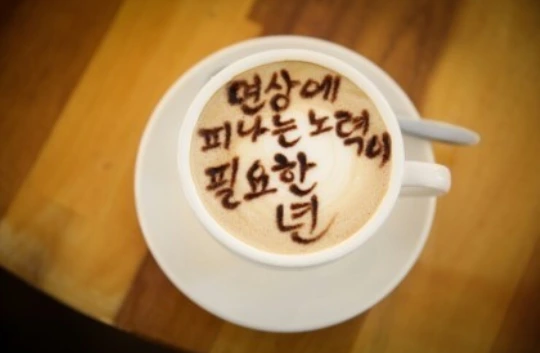 면상에
피나는 노력이
필요한
년